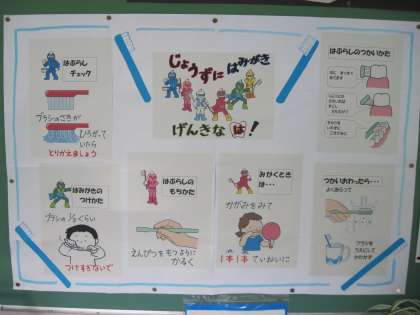 はぶらし
チェック
ブラシのさきが
ひろがって
いたら
とりかえましょう
じょうずに はみがき
げんきな は!
はぶらしのつかいかた
はみがきの
つけかた
ブラシの1/3くらい
つけすぎないで
はぶらしの
もちかた
えんぴつをもつように
かるく
みがくとき
は・・・
かがみをみて
1本1本ていねいに
つかいおわったら・・・
よくあらって
ブラシを
うえにして
かわかす